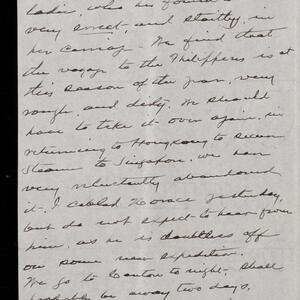 lady, who has found a
very sweet, and stately, in
her carriage. We find that
the voyage to the Philippines at
this season of the year, very
rough, and dirty. We should
have to take it over again, in
returning to Hongkong to secure
Steam to Singapore, we have
very reluctantly abandoned
it. I cabled Horace yesterday,
but do not expect to hear from
him, as he is doubtless off
on some new expedition.
We go to Canton to night. Shall
probably be away two days,